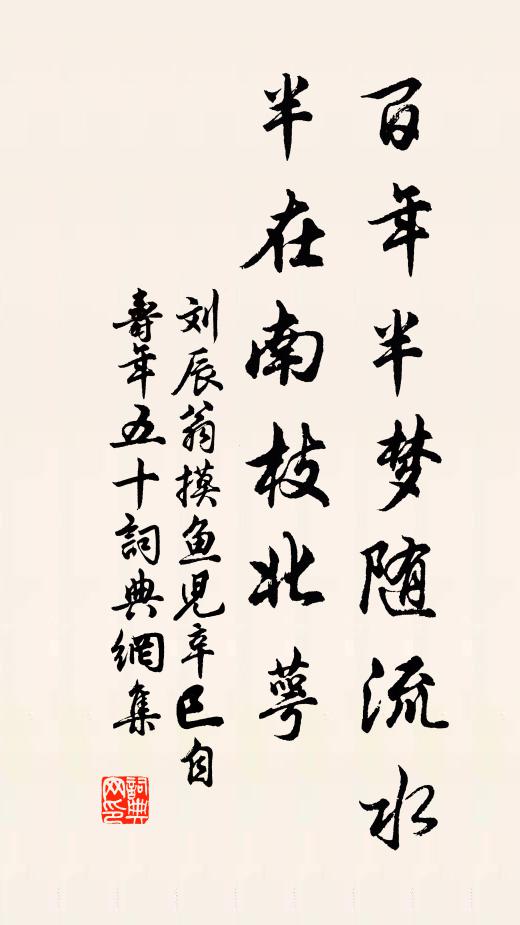 百年半梦随流水
半在南枝北萼
刘辰翁摸鱼児辛巳自
壽年五十詞典網集
詞典
网印